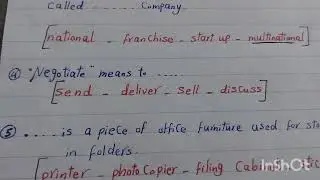 called ...... Company.
[national - franchise - start up - multinational]
④ "Negotiate" means to ......
[send - deliver - sell - discuss]
⑤ ..... is a piece of office furniture used for
in folders.
[printer - photoCopier - filing Cabin
InShOt